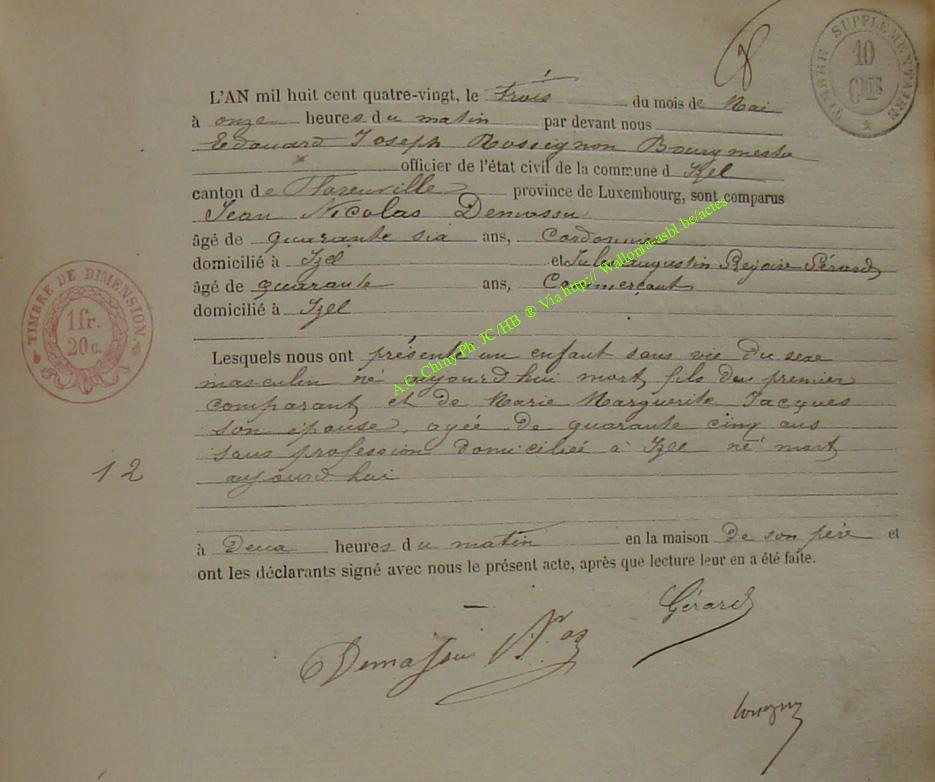 TIMBRE SUPPLEMENTAIRE
10
CMES
L'AN mil huit cent quatre-vingt, le trois du mois de Mai
à onze heures du matin par devant nous
Edouard Joseph Rossignon Bourgmestre
officier de l'état civil de la commune d Izel
canton de Florenville province de Luxembourg, sont comparus
Jean Nicolas Demassu
âgé de quarante six ans, Cordonnier
domicilié à Izel et Jules augustin Gérard
âgé de quarante ans, Commerçant
domicilié à Izel
TIMBRE DE DIMENSION.
1 fr.
20 c.
Lesquels nous ont présenté un enfant sans vie du sexe
masculin né aujourd'hui mort fils du premier
comparant et de Marie Marguerite Jacques
son épouse, agée de quarante cinq ans
sans profession domiciliée à Izel né mort
aujourd'hui
12
à Deux heures du matin en la maison de son père et
ont les déclarants signé avec nous le présent acte, après que lecture leur en a été faite.
Gérard
Demassu Nas
A.C. Chiny Ph. JC /HB ® Via http// Wallonia-asbl.be/actes